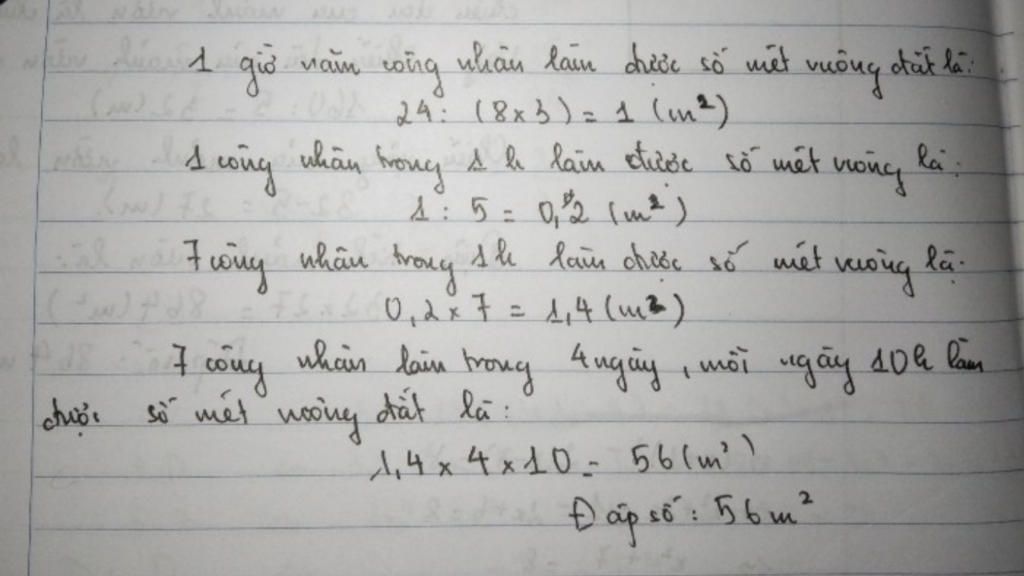 1 giờ năm công nhân làm được số mét vuông đất là:
24: (8×3) = 1 (m²)
1 công nhân trong 1h làm được số mét vuông là:
1 : 5 = 0,2 (m²)
7 công nhân trong 1h làm được số mét vuông là:
0,2 × 7 = 1,4 (m²)
7 công nhân làm trong 4 ngày, mỗi ngày 10h làm
được số mét vuông đất là:
1,4 × 4 × 10 = 56 (m²)
Đáp số: 56 m²